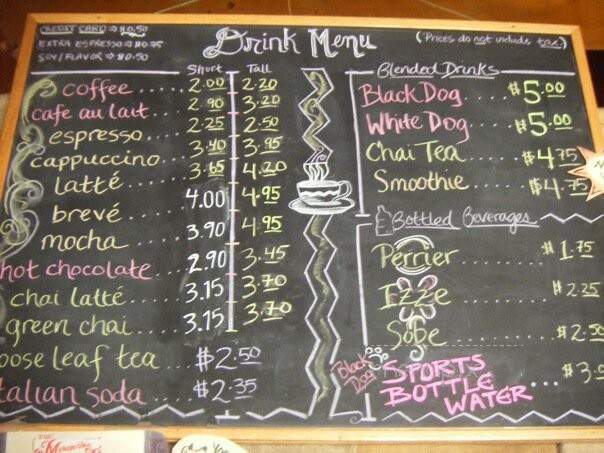 CREDIT CARD → $0.50
EXTRA ESPRESSO → $0.75
SOY/FLAVOR → $0.50
Drink Menu
(Prices do not include tax.)
Short Tall
coffee........ 2.00 2.20
cafe au lait.. 2.90 3.20
espresso...... 2.25 2.50
cappuccino.... 3.40 3.95
latté......... 3.65 4.20
brevé......... 4.00 4.95
mocha......... 3.90 4.95
hot chocolate. 2.90 3.45
chai latté.... 3.15 3.70
green chai.... 3.15 3.70
oose leaf tea... $2.50
talian soda..... $2.35
Blended Drinks
Black Dog.... $5.00
White Dog... $5.00
Chai Tea.... $4.75
Smoothie.... $4.75
Bottled Beverages
Perrier....... $1.75
Izze.......... $2.25
Sobe.......... $2.50
Black Dog
SPORTS
BOTTLE
WATER... $3.